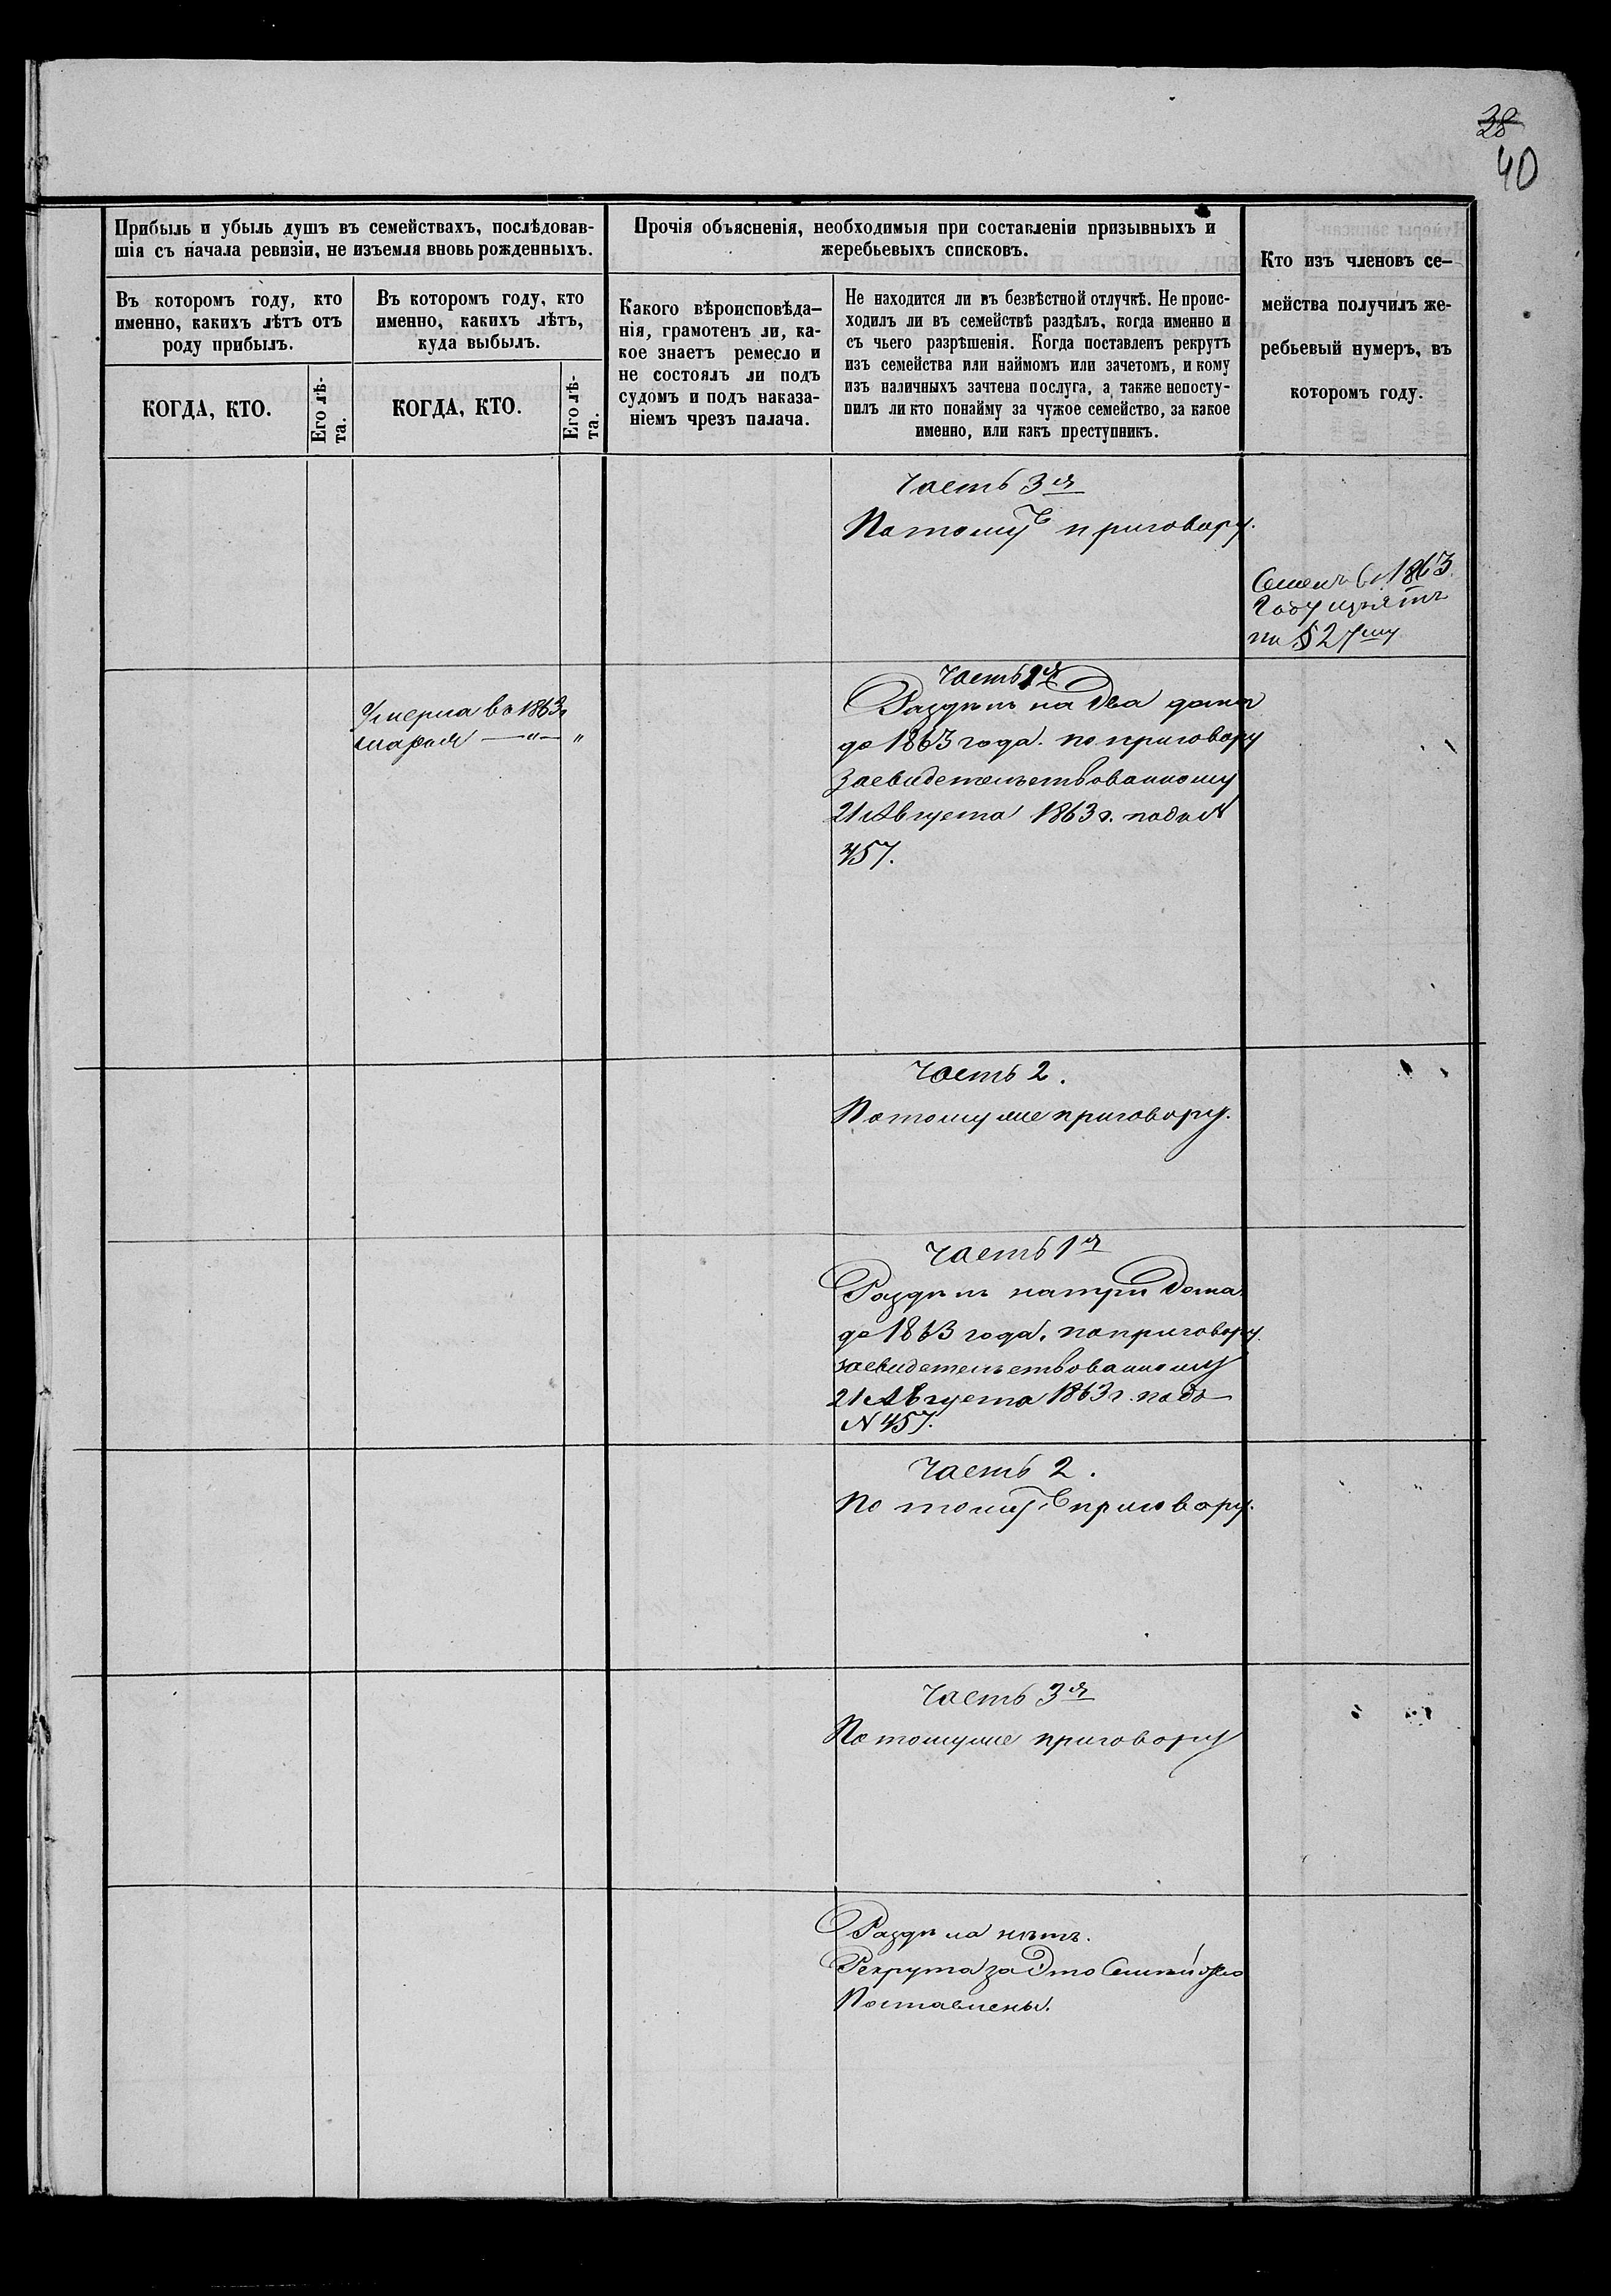 38
40
Прибыль и убыль душъ въ семействахъ, послѣдовав-
шія съ начала ревизіи, не изъемля вновь рожденныхъ.
Въ которомъ году, кто
именно, какихъ лѣтъ отъ
роду прибылъ.
КОГДА, КТО.
Его лѣ-
та.
Въ которомъ году, кто
именно, какихъ лѣтъ,
куда выбылъ.
КОГДА, КТО.
Его лѣ-
та.
Прочія объясненія, необходимыя при составленіи призывныхъ и
жеребьевыхъ списковъ.
Какого вѣроисповѣда-
нія, грамотенъ ли, ка-
кое знаетъ ремесло и
не состоялъ ли подъ
судомъ и подъ наказа-
ніемъ чрезъ палача.
Не находится ли въ безвѣстной отлучкѣ. Не проис-
ходилъ ли въ семействѣ раздѣлъ, когда именно и
съ чьего разрѣшенія. Когда поставленъ рекрутъ
изъ семейства или наймомъ или зачетомъ, и кому
изъ наличныхъ зачтена послуга, а также непосту-
пилъ ли кто понайму за чужое семейство, за какое
именно, или какъ преступникъ.
Кто изъ членовъ се-
мейства получилъ же-
ребьевый нумеръ, въ
которомъ году.
Часть 3я
Потомуж приговору.
Семенъ в 1863
году изъятъ
по § 27му
Умерла въ 1863г
Марья — " — "
Часть 1я
Раздѣлъ на два дома
до 1863 года. по приговору
Засвидетельствованному
21 Августа 1863 г. подъ N
457.
Часть 2.
Потомуже приговору.
Часть 1я
Раздѣлъ на три дома
до 1863 года. по приговору
засвидетельствованному
21 Августа 1863 г. подъ
N 457.
Часть 2.
По томуж приговору.
Часть 3я
Потомуже приговору
Раздѣла нѣтъ.
Рекрута за Это
Поставлены.